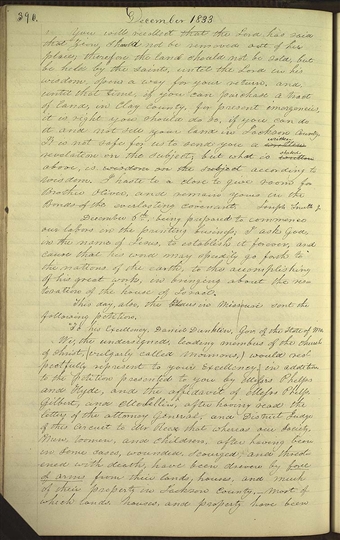 390. December 1833
You will recollect that the Lord has said
that Zion should not be removed out of her
place; therefore the land should not be sold, but
be held by the Saints, until the Lord in his
wisdom opens a way for your return, and
until that time, if you can purchase a tract
of land, in Clay County, for present emergencies,
it is right you should do so, if you can do
it and not sell your land in Jackson County.
It is not safe for us to send you a written
revelation on the subject, but what is stated
above, is wisdom according to
wisdom. I haste to a close to give room for
Brother Oliver, and remain yours in the
Bonds of the everlasting covenant. Joseph Smith Jr
December 6th, being prepared to commence
our labors in the printing business, I ask God
in the name of Jesus, to establish it forever, and
cause that his word may speedily go forth to
the nations of the earth, to the accomplishing
of his great work, in bringing about the res-
toration of the House of Israel.
This day, also, the Elders in Missouri sent the
following petition.
To his Excellency, Daniel Dunklin, Gov. of the State of Mo.
We, the undersigned, leading members of the church
of Christ, (vulgarly called Mormons,) would res-
pectfully represent to your Excellency, in addition
to the petition presented to you by Messrs Phelps
and Hyde, and the affidavit of Messrs Phelps
Gilbert, and McLellin, after having read the
letters of the attorney General, and District Judge
of this circuit to Mr Rees that whereas our society,
Men, women, and children, after having been
in some cases, wounded, scourged, and threat-
ened with death, have been driven by force
of arms from their lands, houses, and much
of their property in Jackson County,—most of
which lands houses, and property have been